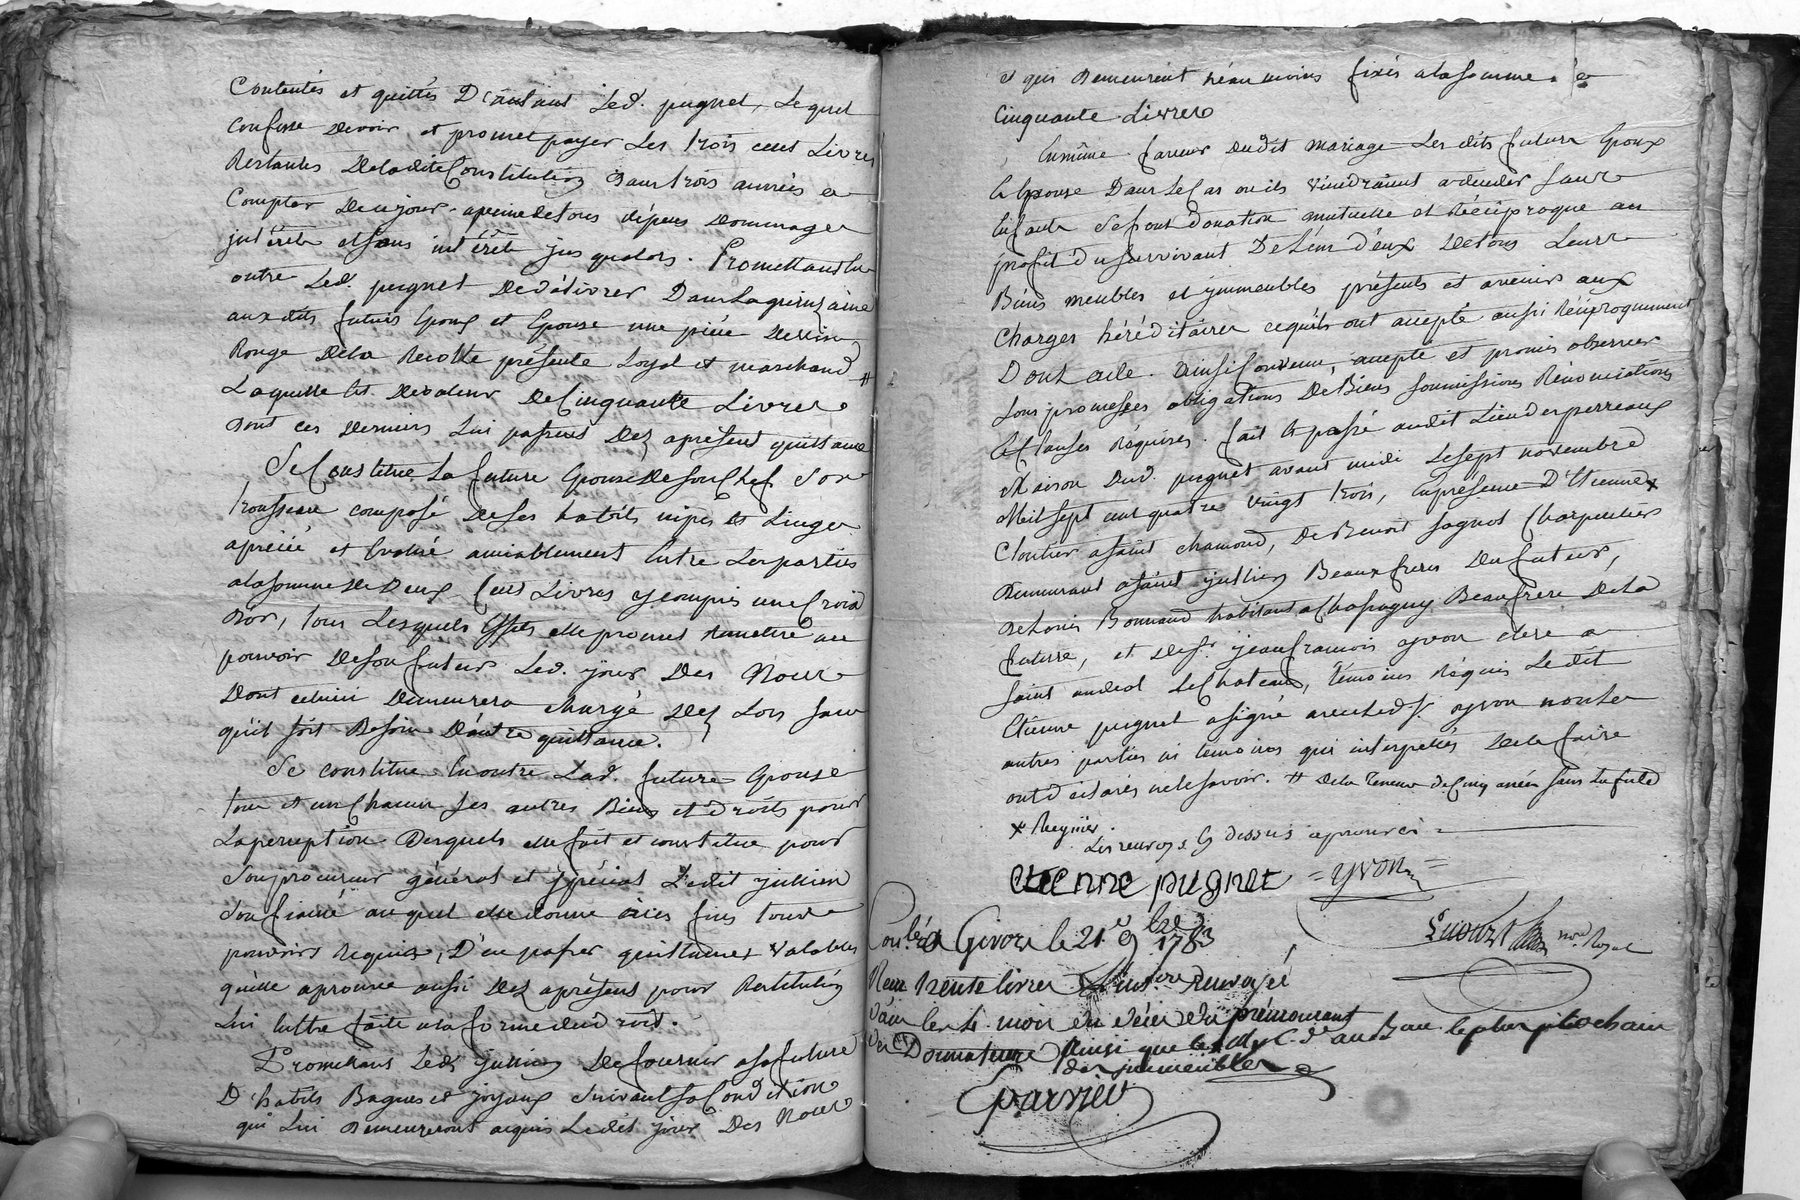 Contentés et quittés D'autant Led. pugnet, Lequel
confesse devoir et promet payer Les trois cent Livres
Restantes Deladite Constitution Dans trois années a
Compter De ce jour, apeine de tous dépens Dommages
jntérêts et sans intérêts jusqualors. Promettant en
outre Led. pugnet De délivrer Dans La quinzaine
auxdits futurs Epoux et Epouse une pièce De vin
Rouge Dela Recolte présente Loyal et marchand #
Laquelle Est De valeur De Cinquante Livres
Dont ces Derniers Lui passent Dez aprésent quittance
Se Constitue La future Epouse De son Chef Son
trousseau composé De ses habits nipes et Linge
apreciés et Evalué amiablement Entre Les parties
alasomme De Deux Cent Livres y compris une Croix
D'or, tous Lesquels Effets elle promet Remettre au
pouvoir De son futur Led. jour Des Noces
Dont celuici Demeurera chargé Dez Lors sans
qu'il soit Besoin D'autre quittance.
Se constitue En outre Lad. future Epouse
tous et un Chacun Ses autres Biens et Droits pour
La perception Desquels elle fait et constitue pour
Son procureur général et spécial Ledit jullien
Son fiancé auquel elle donne à ces fins tous
pouvoirs Requis, D'en passer quittances valables
qu'elle aprouve aussi Dez aprésent pour Restitution
Lui Estre faite a la forme du droit.
Promettant Led. jullien De fournir asa future
D'habits Bagues et joyaux Suivant sa Condition
qui Lui Demeureront acquis Ledit jour Des Noces
et qui Demeurent néanmoins fixés alasomme de
Cinquante Livres
En même faveur dudit mariage Les dits future Epoux
Et Epouse Dans Le Cas ou ils viendroient a decéder sans
Enfants Se font Donation mutuelle et Réciproque au
profit du survivant De L'un D'eux De tous Leurs
Biens meubles et jmmeubles présents et avenir aux
Charges héréditaires cequils ont accepté aussi Réciproquement
Dont acte. Ainsi Convenu, accepté et promis observer
Sous promesses obligations De Biens soumissions Renonciations
et Clauses Requises. fait Et passé audit Lieu des perreaux
Maison Dud. pugnet avant midi Le sept novembre
Mil sept cent quatre vingt trois, En présence D'Etienne x
Cloutier asaint chamond, De Benoit Jagnot Charpentier
Demeurant asaint jullien Beaux freres Du futur,
De Louis Bonnand habitant a Chassagny Beaufrère Dela
future, et De Sr. jean françois yvon clerc a
Saint andeol Le Chateau, témoins Requis Ledit
Etienne pugnet a signé avec Led. Sr. yvon non les
autres parties ni temoins qui interpellés De le faire
ont déclarés ne le savoir. # Dela Teneur De Cinq anées sans La futé
x Reynier.
Les renvoys Cy dessus aprouvés
etienne pugnet = yvon =
nre. Royal
Conlé. a Givors le 21 9bre 1783
Reçu trente livres
le pluspitochain
des immeubles